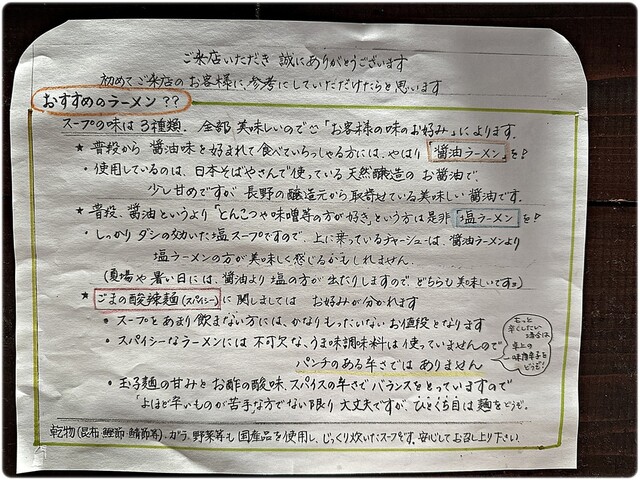 ご来店いただき 誠にありがとうございます
初めてご来店のお客様に、参考にしていただけたらと思います
おすすめのラーメン??
スープの味は3種類. 全部 美味しいので「お客様の味のお好み」によります.
★ 普段から 醤油味を好まれて食べていらっしゃる方には、やはり「醤油ラーメン」を!
・使用しているのは、日本そばやさんで使っている 天然醸造の お醤油で、
少し甘めですが 長野の醸造元から取寄せている美味しい醤油です.
★ 普段、醤油というより「とんこつや味噌等の方が好き」という方は是非「塩ラーメン」を!
・しっかり ダシの効いた塩スープですので、上に乗っているチャーシューは、醤油ラーメンより
塩ラーメンの方が美味しく感じるかもしれません.
(真場や暑い日には、醤油より 塩の方が 出たりしますので どちらも美味しいですョ)
★ ごまの酸辣麺(スパイシー)に関しましては お好みが分かれます
・スープをあまり飲まない方には、かなりもったいないお値段となります
・スパイシーなラーメンには 不可欠な、うま味調味料は使っていませんので
パンチのある辛さではありません
もっと
辛くしたい
場合は
卓上の
味唐辛子を
どうぞ!
・玉子麺の甘みと お酢の酸味、スパイスの辛さで バランスをとっていますので
「よほど辛いものが苦手な方でない限り 大丈夫ですが、ひとくち目は麺をどうぞ.
乾物(昆布・鰹節・鯖節等)、ガラ、野菜等も 国産品を使用し、じっくり炊いたスープです. 安心してお召し上り下さい.